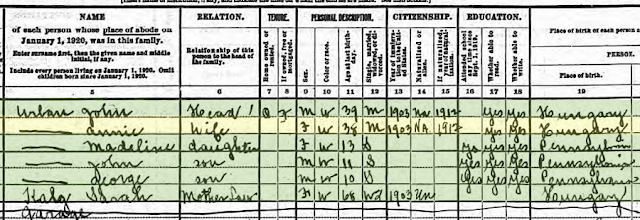 NAME RELATION. TENURE. PERSONAL DESCRIPTION. CITIZENSHIP. EDUCATION.
of each person whose place of abode on January 1, 1920, was in this family.
Enter surname first, then the given name and middle initial, if any.
Include every person living on January 1, 1920. Omit children born since January 1, 1920.
Relationship of this person to the head of the family.
Home owned or rented.
If owned, free or mortgaged.
Sex.
Color or race.
Age at last birthday.
Single, married, widowed, or divorced.
Naturalized or alien.
Whether able to read.
Whether able to write.
Place of birth of each person
PERSON.
Place of birth.
5 6 7 8 9 10 11 12 13 14 15 16 17 18 19
Urban John Head 1 O F M W 39 M 1903 Na 1912 Yes Yes Hungary
— Annie Wife F W 38 M 1903 NA. 1912 Yes Yes Hungary
— Madeline daughter F W 13 S Yes Yes Yes Pennsylvania
— John son M W 11 S Yes Yes Yes Pennsylvania
— George son M W 10 S Yes Yes Yes Pennsylvania
Sarah Mother Law F W 68 Wd 1903 Un Hungary